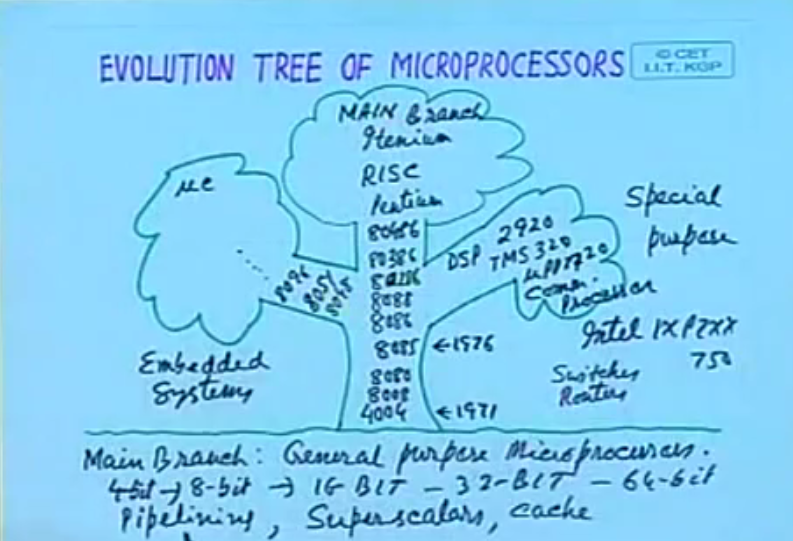 EVOLUTION TREE OF MICROPROCESSORS
© CET
I.I.T. KGP
MAIN Branch
Itenium
RISC
Pentium
80486
80386
80286
8088
8086
8085 ← 1976
8080
8008
4004 ← 1971
μc
8096
8051
8048
Embedded
Systems
DSP
2920
TMS 320
μPD7720
Comm.
Processor
Special
purpose
Intel IXP7XX
750
Switches
Routers
Main Branch: General purpose Microprocessors.
4bit → 8-bit → 16-BIT – 32-BIT – 64-bit
Pipelining, Superscalars, cache